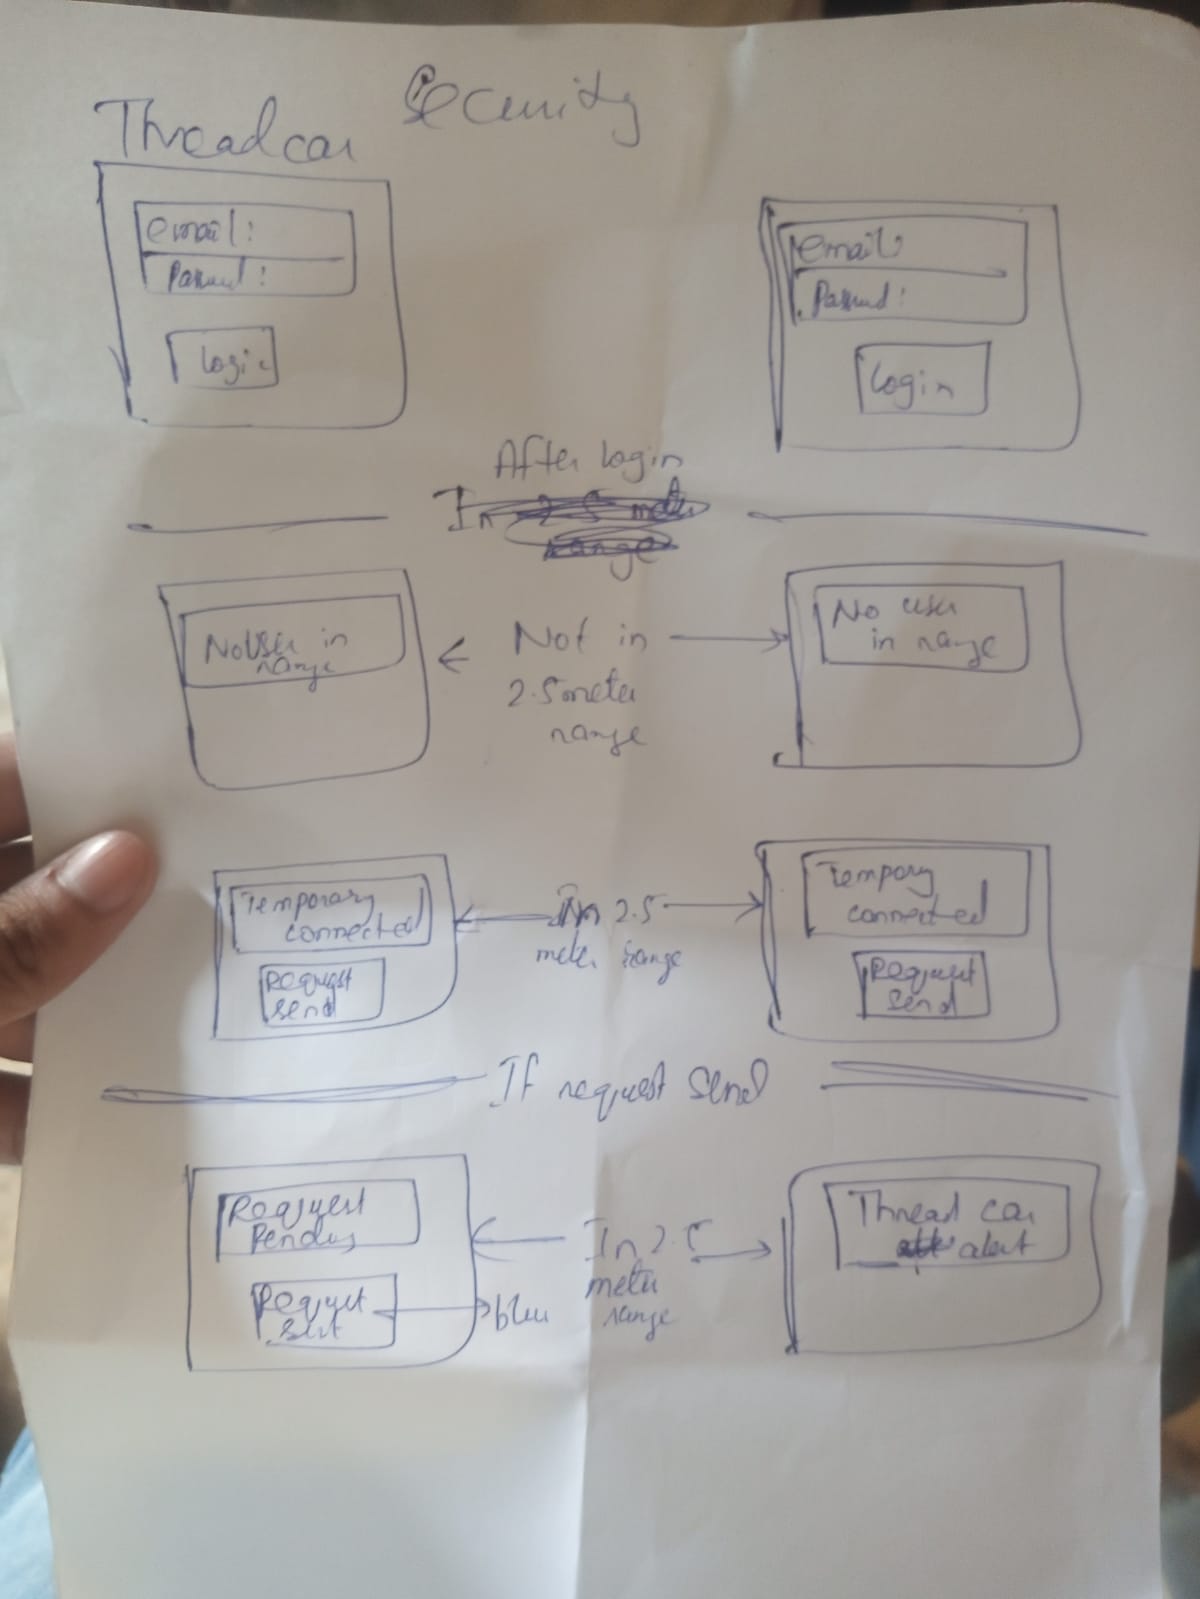 Threadcar Security
email:
Passwd:
Login
email:
Passwd:
Login
After login
In 2.5 meter
range
No User in
range
Not in
2.5 meter
range
No user
in range
Temporary
connected
Request
send
In 2.5
meter range
Tempory
connected
Request
send
If request send
Request
Request
In 2.5
meter
range
Thread car
alert